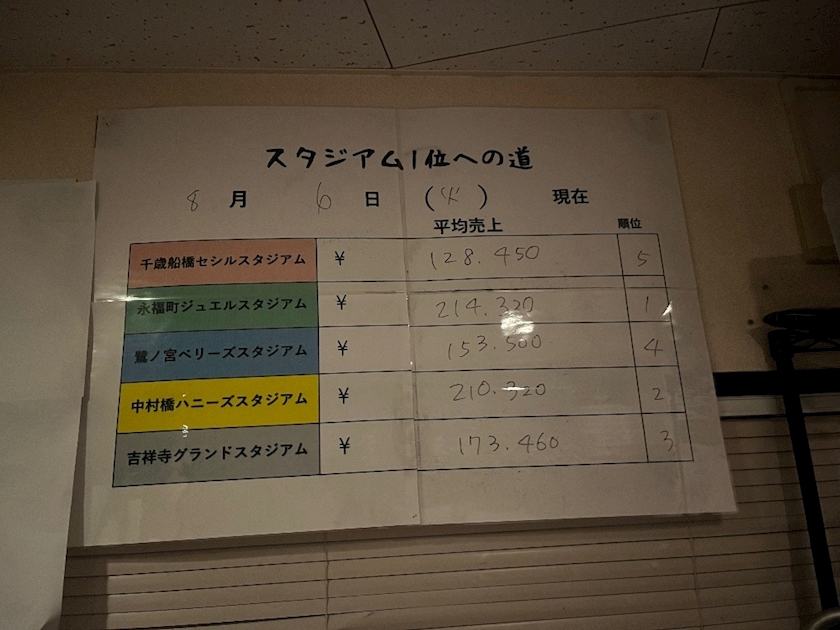 スタジアム1位への道
8月 6日 (火) 現在
平均売上 順位
千歳船橋セシルスタジアム ¥ 128.450 5
永福町ジュエルスタジアム ¥ 214.320 1
鷺ノ宮ベリーズスタジアム ¥ 153.500 4
中村橋ハニーズスタジアム ¥ 210.320 2
吉祥寺グランドスタジアム ¥ 173.460 3